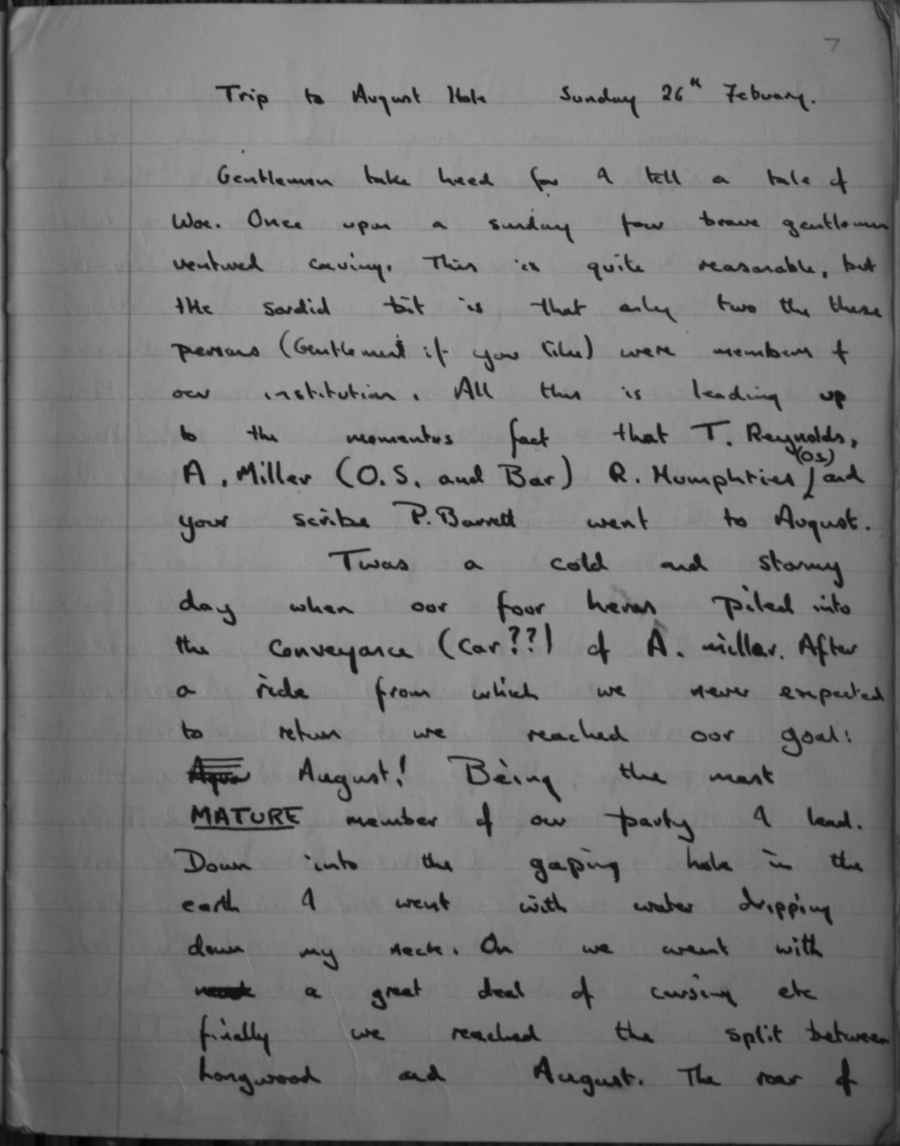 7
Trip to August Hole Sunday 26th Febuary.
Gentlemen take heed for I tell a tale of
Woe. Once upon a sunday four brave gentlemen
ventured caving. This is quite reasonable, but
the sordid bit is that only two the these
persons (Gentlemen if you like) were members of
our institution. All this is leading up
to the momentus fact that T. Reynolds,
A. Miller (O.S. and Bar) R. Humphries (O.S) and
your scribe P. Barrett went to August.
Twas a cold and stormy
day when our four heros piled into
the conveyance (car??) of A. miller. After
a ride from which we never expected
to return we reached our goal:
August! Being the most
MATURE member of our party I lead.
Down into the gaping hole in the
earth I went with water dripping
down my neck. On we went with
a great deal of cursing etc
finally we reached the split between
Longwood and August. The roar of